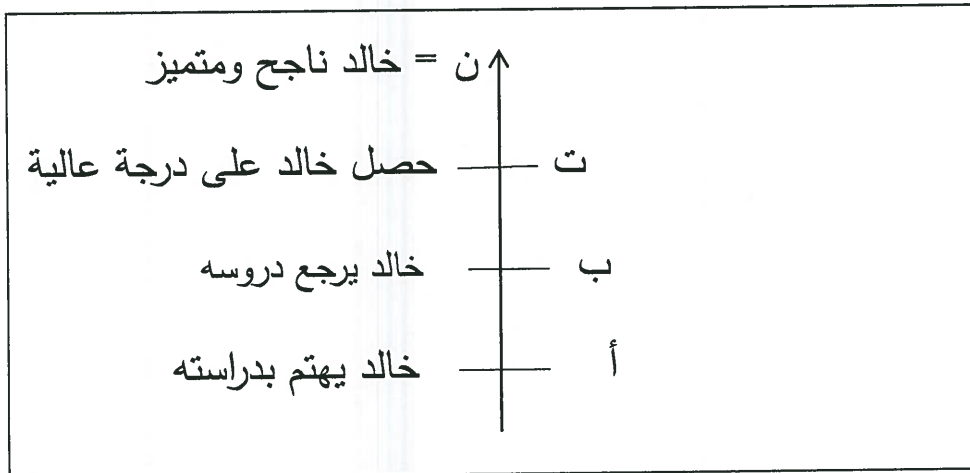 ن = خالد ناجح ومتميز
ت حصل خالد على درجة عالية
ب خالد يرجع دروسه
أ خالد يهتم بدراسته